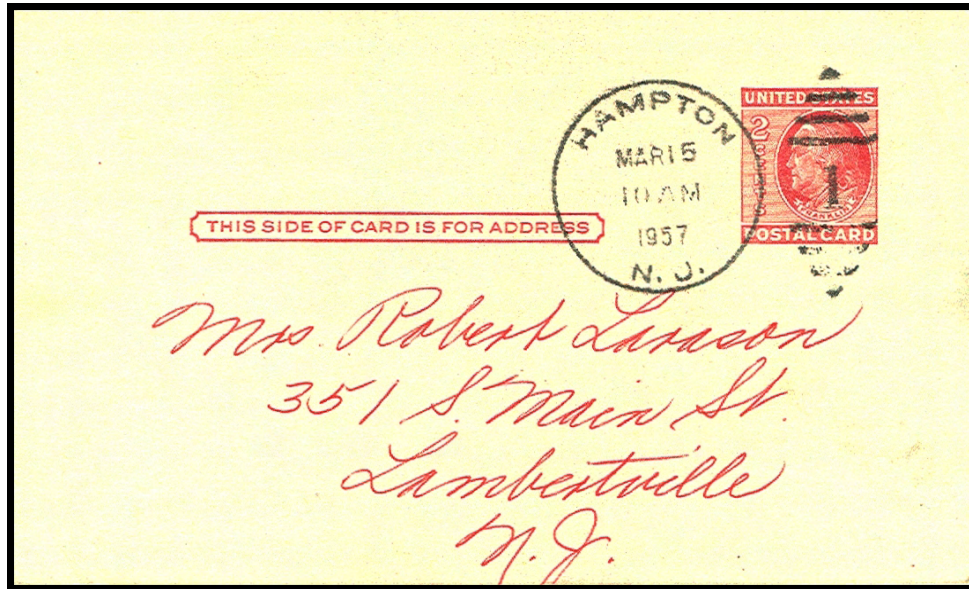 HAMPTON
MAR 15
10 AM
1957
N. J.
UNITED STATES
2 CENTS
FRANKLIN
POSTAL CARD
1
THIS SIDE OF CARD IS FOR ADDRESS
Mrs. Robert Larason
351 S. Main St.
Lambertville
N. J.